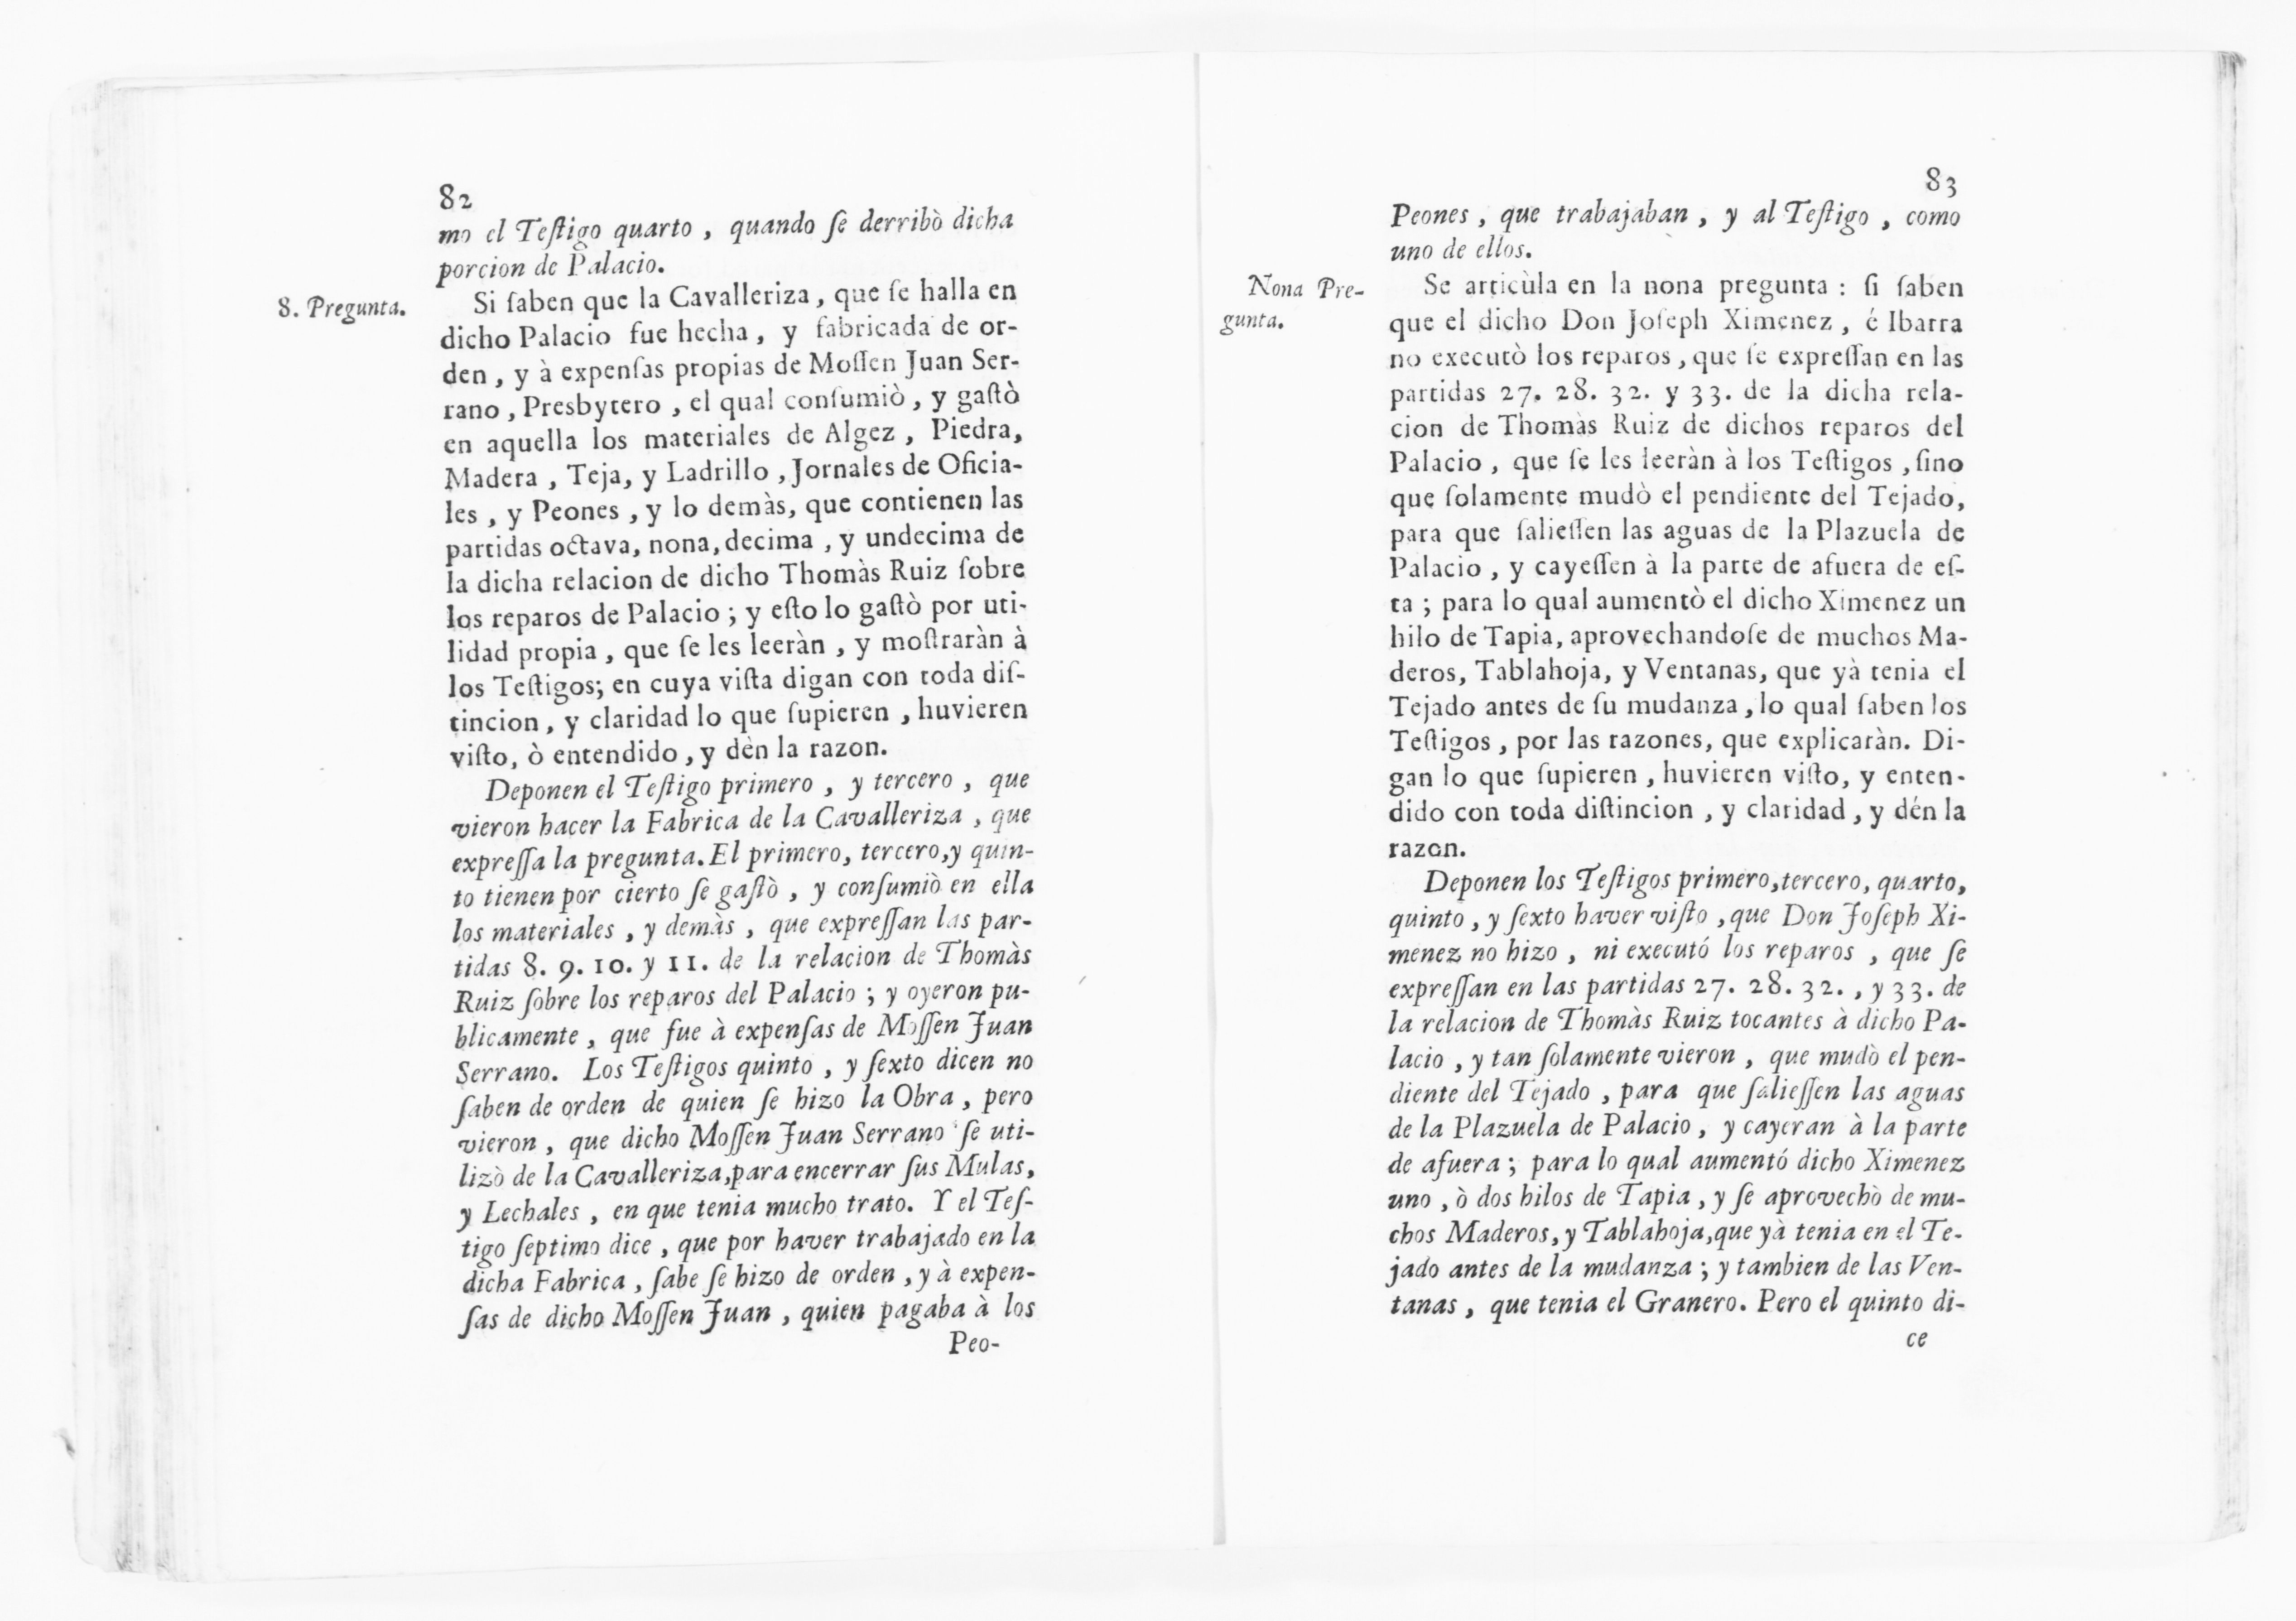 82
mo el Teſtigo quarto , quando ſe derribò dicha
porcion de Palacio.
8. Pregunta.
Si ſaben que la Cavalleriza , que ſe halla en
dicho Palacio fue hecha , y fabricada de or-
den , y à expenſas propias de Moſſen Juan Ser-
rano , Presbytero , el qual conſumiò , y gaſtò
en aquella los materiales de Algez , Piedra,
Madera , Teja, y Ladrillo , Jornales de Oficia-
les , y Peones , y lo demàs, que contienen las
partidas octava, nona, decima , y undecima de
la dicha relacion de dicho Thomàs Ruiz ſobre
los reparos de Palacio ; y eſto lo gaſtò por uti-
lidad propia , que ſe les leeràn , y moſtraràn à
los Teſtigos; en cuya viſta digan con toda diſ-
tincion , y claridad lo que ſupieren , huvieren
viſto, ò entendido , y dèn la razon.
Deponen el Teſtigo primero , y tercero , que
vieron hacer la Fabrica de la Cavalleriza , que
expreſſa la pregunta. El primero, tercero,y quin-
to tienen por cierto ſe gaſtò , y conſumiò en ella
los materiales , y demàs , que expreſſan las par-
tidas 8. 9. 10. y 11. de la relacion de Thomàs
Ruiz ſobre los reparos del Palacio ; y oyeron pu-
blicamente , que fue à expenſas de Moſſen Juan
Serrano. Los Teſtigos quinto , y ſexto dicen no
ſaben de orden de quien ſe hizo la Obra , pero
vieron , que dicho Moſſen Juan Serrano ſe uti-
lizò de la Cavalleriza,para encerrar ſus Mulas,
y Lechales , en que tenia mucho trato. Y el Teſ-
tigo ſeptimo dice , que por haver trabajado en la
dicha Fabrica , ſabe ſe hizo de orden , y à expen-
ſas de dicho Moſſen Juan , quien pagaba à los
Peo-
83
Peones , que trabajaban , y al Teſtigo , como
uno de ellos.
Nona Pre-
gunta.
Se articùla en la nona pregunta : ſi ſaben
que el dicho Don Joſeph Ximenez , é Ibarra
no executò los reparos , que ſe expreſſan en las
partidas 27. 28. 32. y 33. de la dicha rela-
cion de Thomàs Ruiz de dichos reparos del
Palacio , que ſe les leeràn à los Teſtigos , ſino
que ſolamente mudò el pendiente del Tejado,
para que ſalieſſen las aguas de la Plazuela de
Palacio , y cayeſſen à la parte de afuera de eſ-
ta ; para lo qual aumentò el dicho Ximenez un
hilo de Tapia, aprovechandoſe de muchos Ma-
deros, Tablahoja, y Ventanas, que yà tenia el
Tejado antes de ſu mudanza , lo qual ſaben los
Teſtigos , por las razones, que explicaràn. Di-
gan lo que ſupieren , huvieren viſto, y enten-
dido con toda diſtincion , y claridad , y dén la
razon.
Deponen los Teſtigos primero,tercero, quarto,
quinto , y ſexto haver viſto , que Don Joſeph Xi-
menez no hizo , ni executó los reparos , que ſe
expreſſan en las partidas 27. 28. 32. , y 33. de
la relacion de Thomàs Ruiz tocantes à dicho Pa-
lacio , y tan ſolamente vieron , que mudò el pen-
diente del Tejado , para que ſalieſſen las aguas
de la Plazuela de Palacio , y cayeran à la parte
de afuera ; para lo qual aumentó dicho Ximenez
uno , ò dos hilos de Tapia , y ſe aprovechò de mu-
chos Maderos, y Tablahoja,que yà tenia en el Te-
jado antes de la mudanza ; y tambien de las Ven-
tanas , que tenia el Granero. Pero el quinto di-
ce